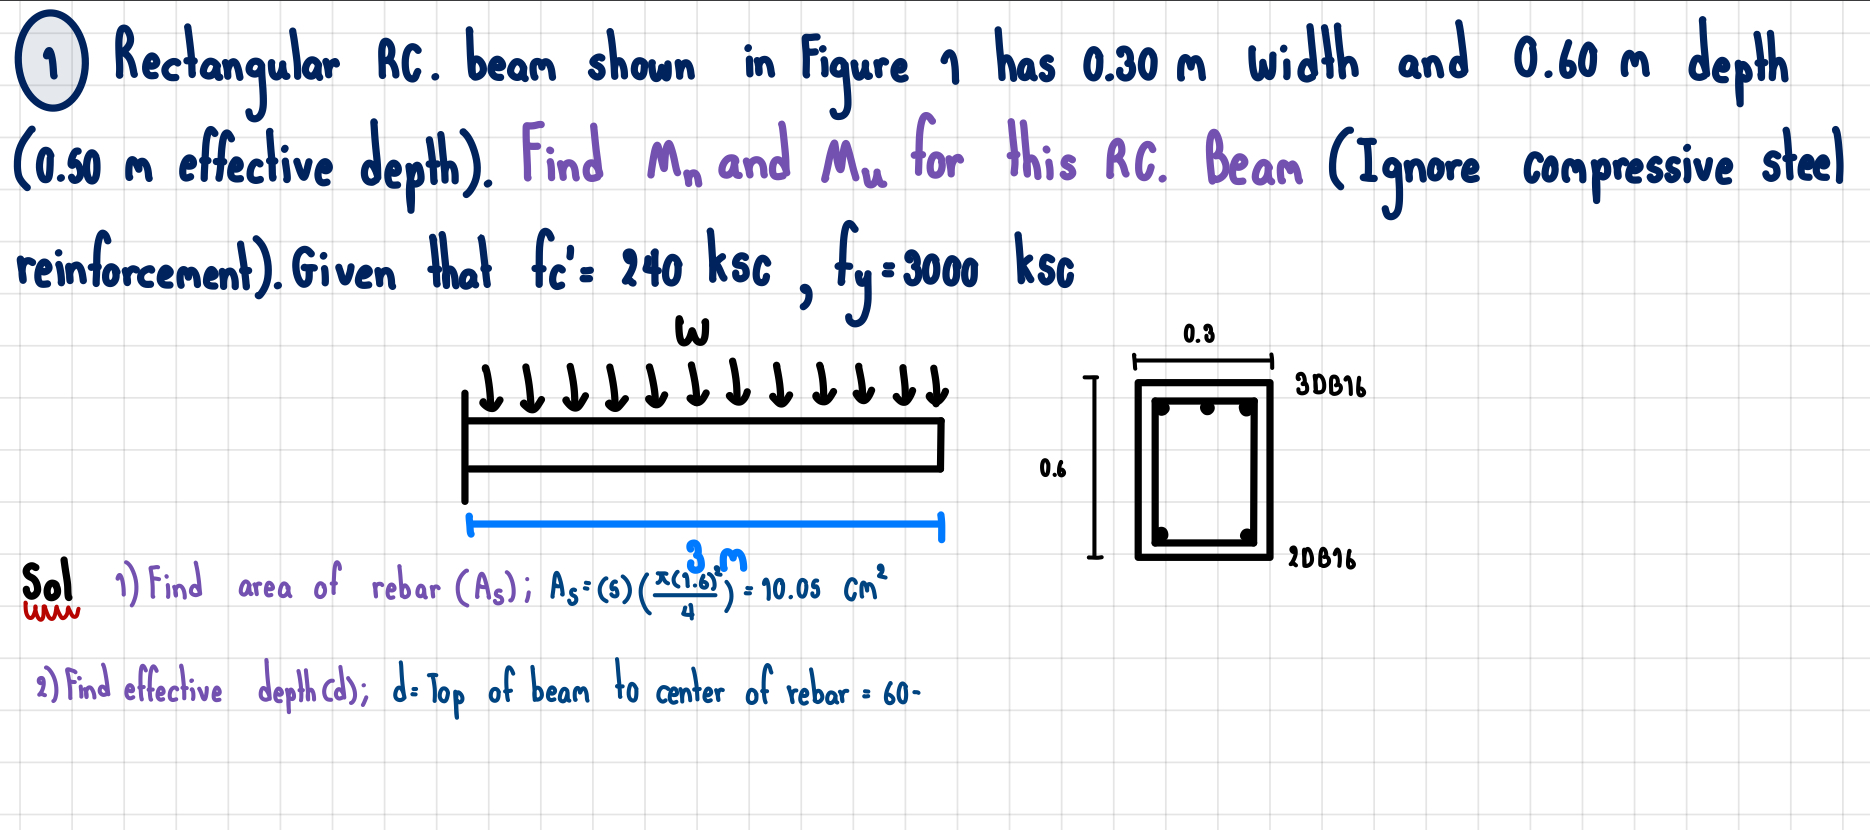 1 Rectangular RC. beam shown in Figure 1 has 0.30 m width and 0.60 m depth
(0.50 m effective depth). Find Mn and Mu for this RC. Beam (Ignore compressive steel
reinforcement). Given that fc' = 240 ksc , fy = 3000 ksc
W
0.3
3DB16
0.6
3 m
2DB16
Sol 1) Find area of rebar (As); As = (5)(π(1.6)²/4) = 10.05 cm²
2) Find effective depth (d); d = Top of beam to center of rebar = 60-